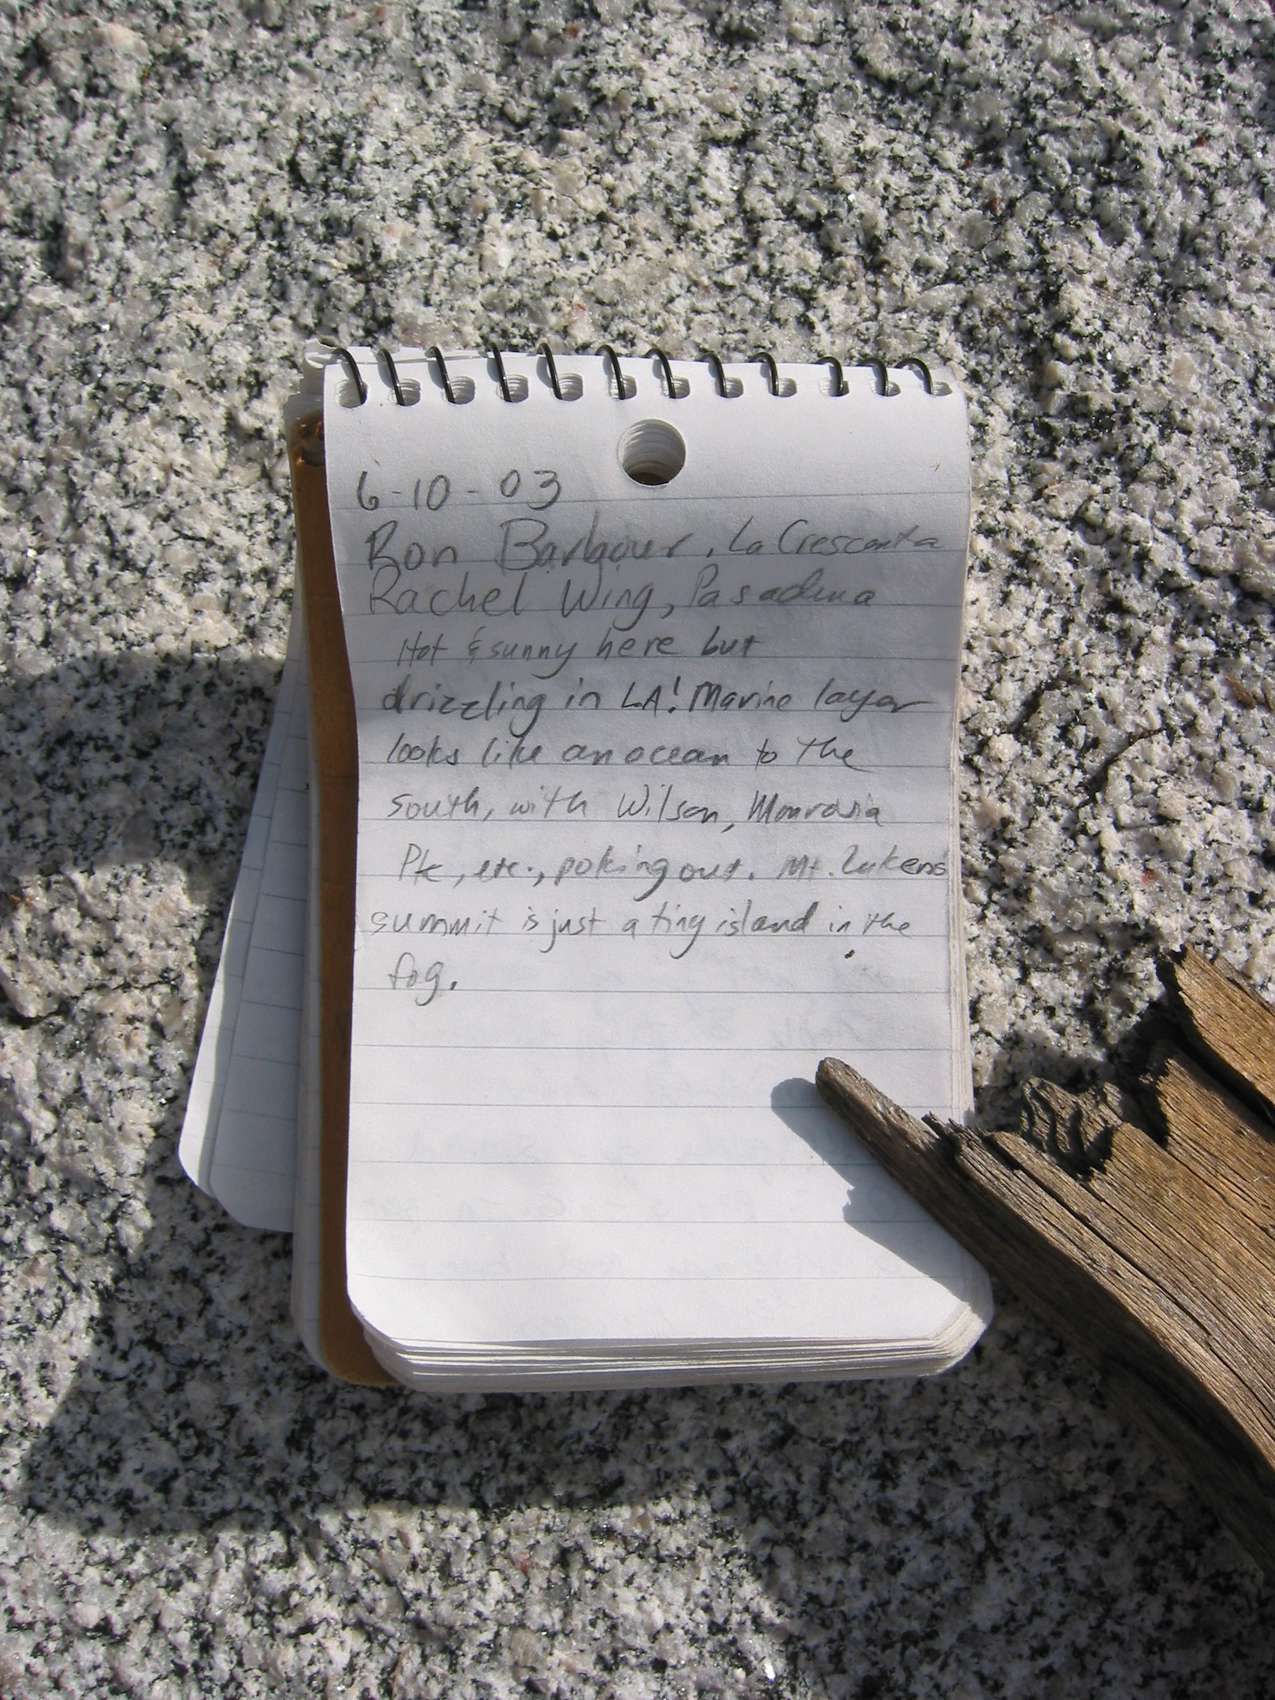 6-10-03
Ron Barbour, La Crescenta
Rachel Wing, Pasadena
Hot & sunny here but
drizzling in LA! Marine layer
looks like an ocean to the
south, with Wilson, Monrovia
Pk, etc., poking out. Mt. Lukens
summit is just a tiny island in the
fog.